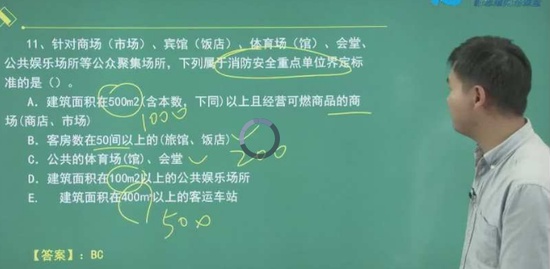 11、针对商场（市场）、宾馆（饭店）、体育场（馆）、会堂、
公共娱乐场所等公众聚集场所，下列属于消防安全重点单位界定标
准的是（）。
A、建筑面积在500m2(含本数，下同)以上且经营可燃商品的商
场(商店、市场)
1000
B、客房数在50间以上的(旅馆、饭店)
C、公共的体育场(馆)、会堂
200
D、建筑面积在100m2以上的公共娱乐场所
E、 建筑面积在400㎡以上的客运车站
500
【答案】：BC